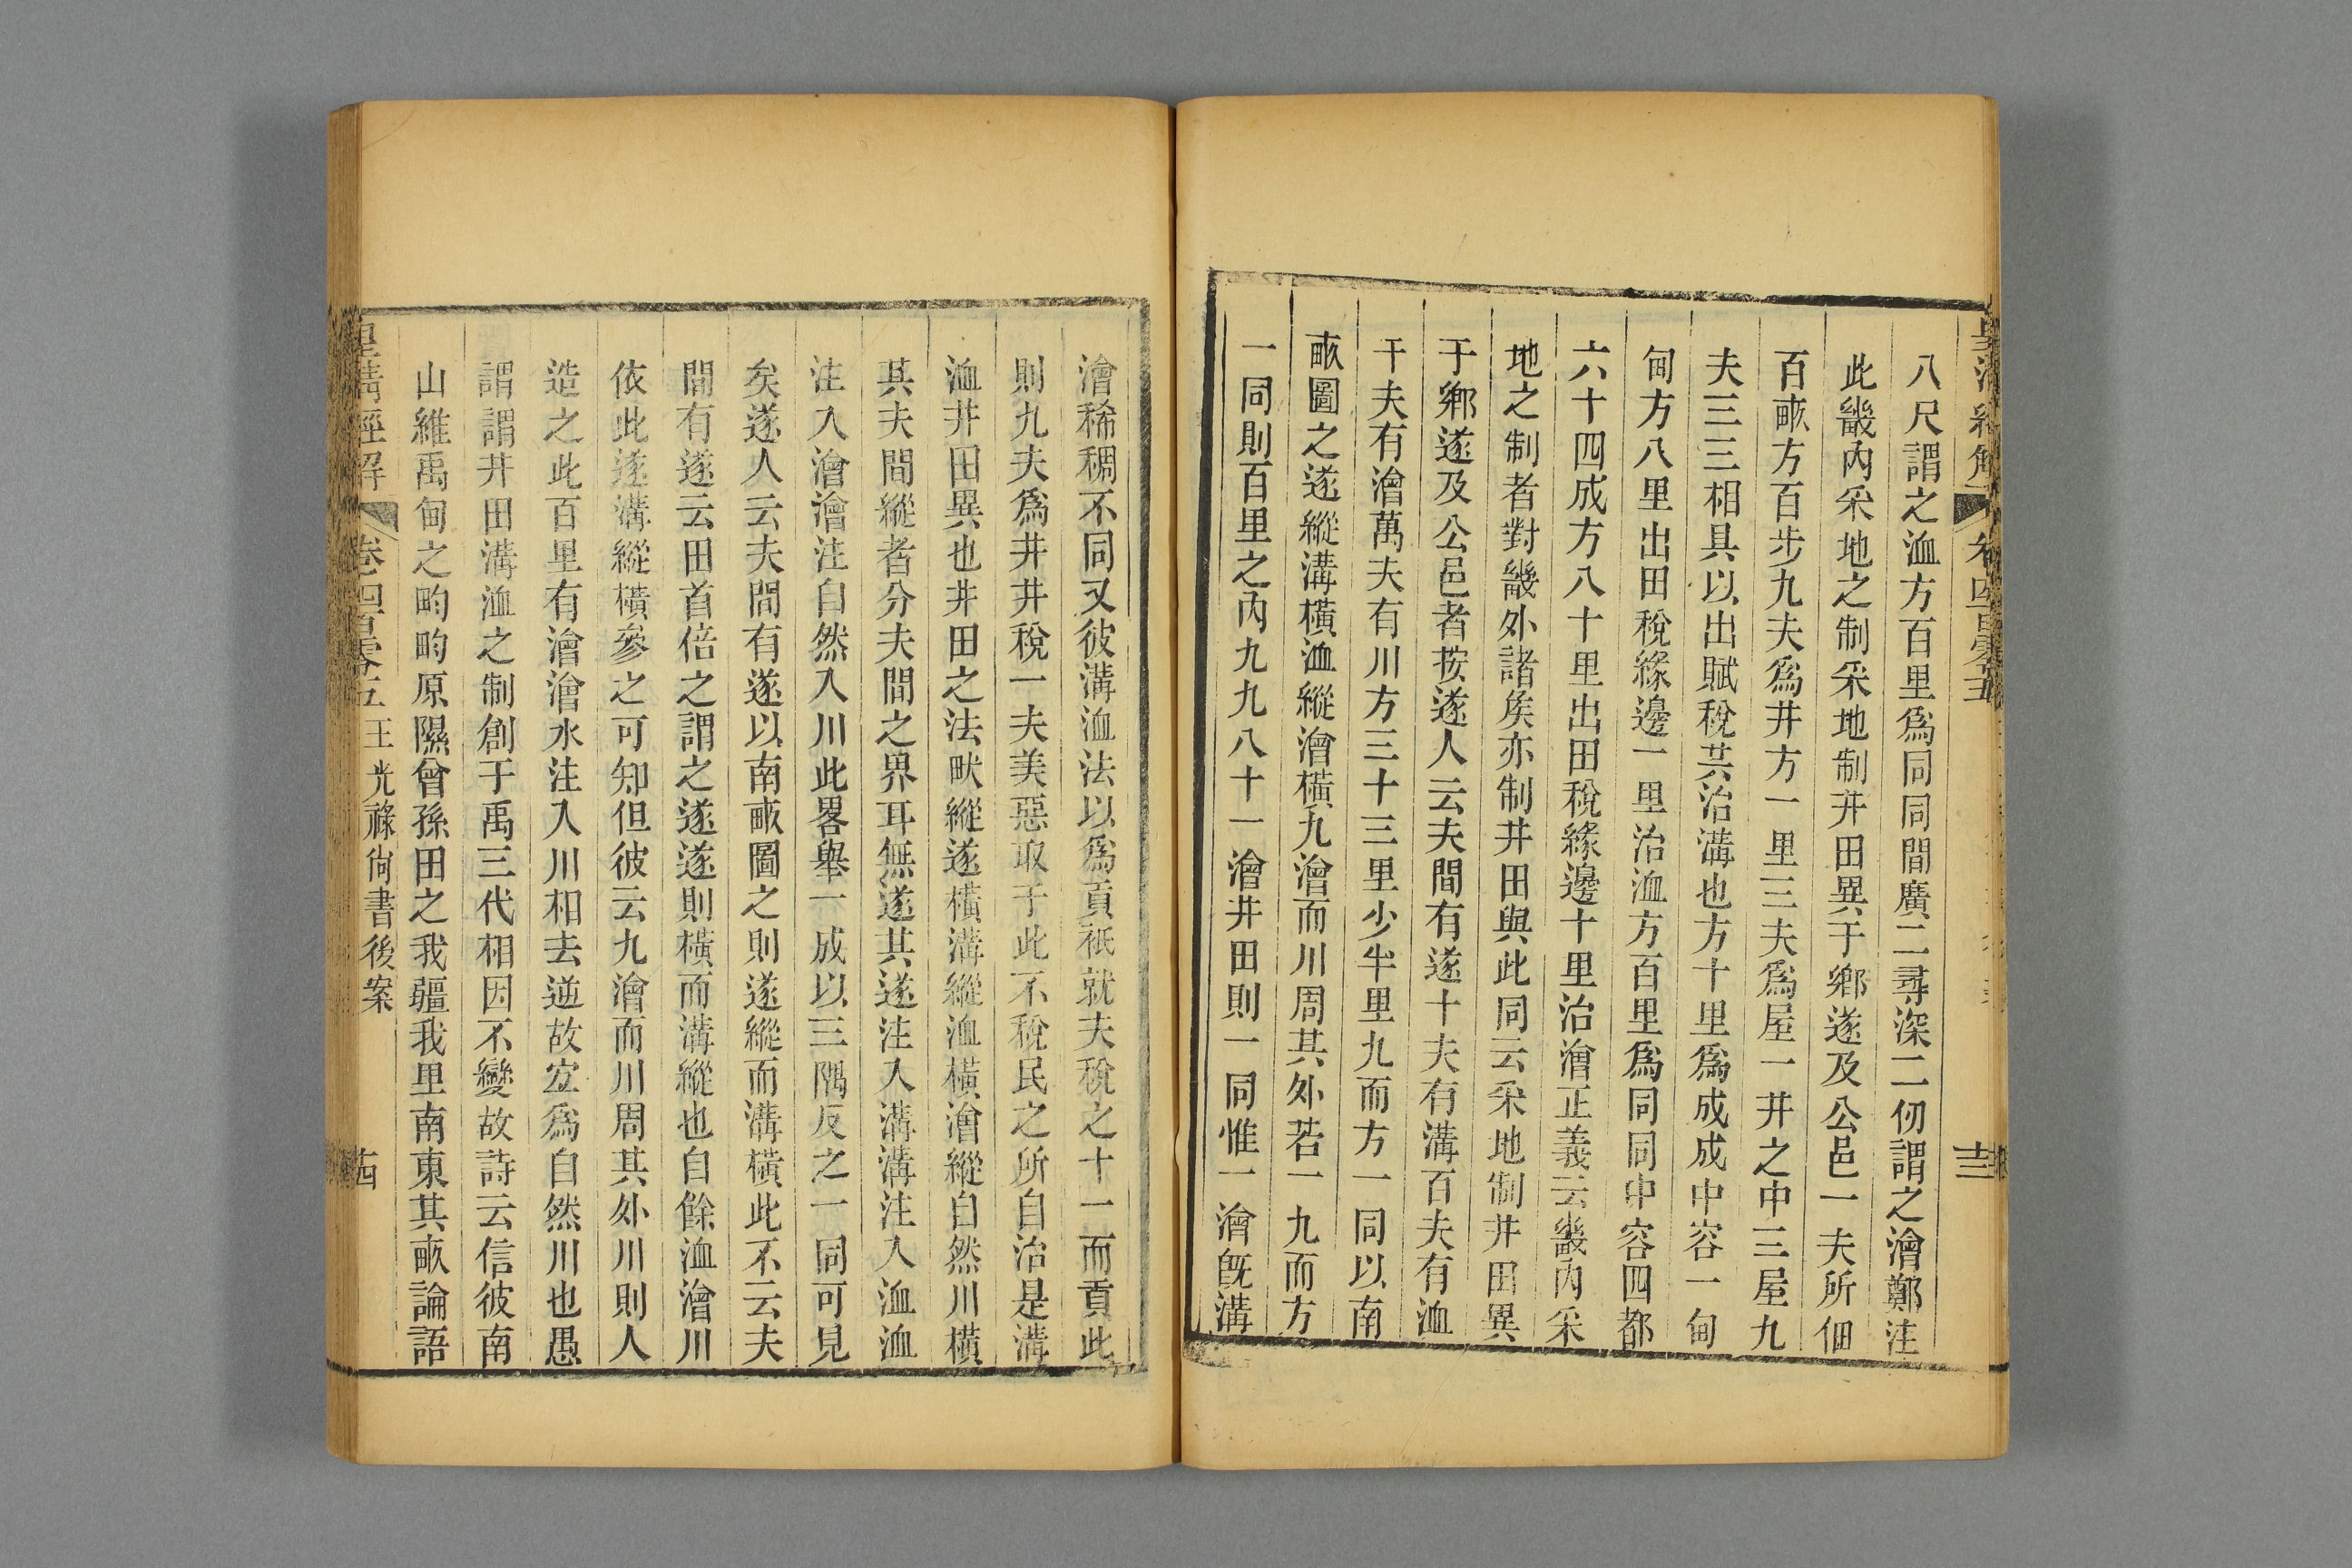 八尺謂之洫方百里爲同同間廣二尋深二仞謂之澮鄭注
此畿內采地之制采地制井田異于鄉遂及公邑一夫所佃
百畝方百步九夫爲井方一里三夫爲屋一井之中三屋九
夫三三相具以出賦稅共治溝也方十里爲成成中容一甸
甸方八里出田稅緣邊一里治洫方百里爲同同中容四都
六十四成方八十里出田稅緣邊十里治澮正義云畿內采
地之制者對畿外諸矦亦制井田與此同云采地制井田異
于鄉遂及公邑者按遂人云夫間有遂十夫有溝百夫有洫
千夫有澮萬夫有川方三十三里少半里九而方一同以南
畝圖之遂縱溝橫洫縱澮橫九澮而川周其外若一九而方
一同則百里之內九九八十一澮井田則一同惟一澮旣溝
澮稀稠不同又彼溝洫法以爲貢祇就夫稅之十一而貢此
則九夫爲井井稅一夫美惡取于此不稅民之所自治是溝
洫井田異也井田之法畎縱遂橫溝縱洫橫澮縱自然川橫
其夫間縱者分夫間之界耳無遂其遂注入溝溝注入洫洫
注入澮澮注自然入川此畧舉一成以三隅反之一同可見
矣遂人云夫間有遂以南畝圖之則遂縱而溝橫此不云夫
間有遂云田首倍之謂之遂遂則橫而溝縱也自餘洫澮川
依此遂溝縱橫參之可知但彼云九澮而川周其外川則人
造之此百里有澮澮水注入川相去逆故宜爲自然川也愚
謂謂井田溝洫之制創于禹三代相因不變故詩云信彼南
山維禹甸之畇畇原隰曾孫田之我疆我里南東其畝論語
皇清經解 卷四百零五 王光祿尙書後案 十四